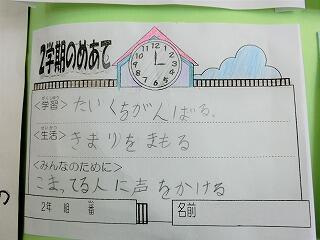 2学期のめあて
<学習> たいくちがんばる。
<生活> きまりをまもる
<みんなのために>
こまってる人に声をかける
2年 組 番 名前